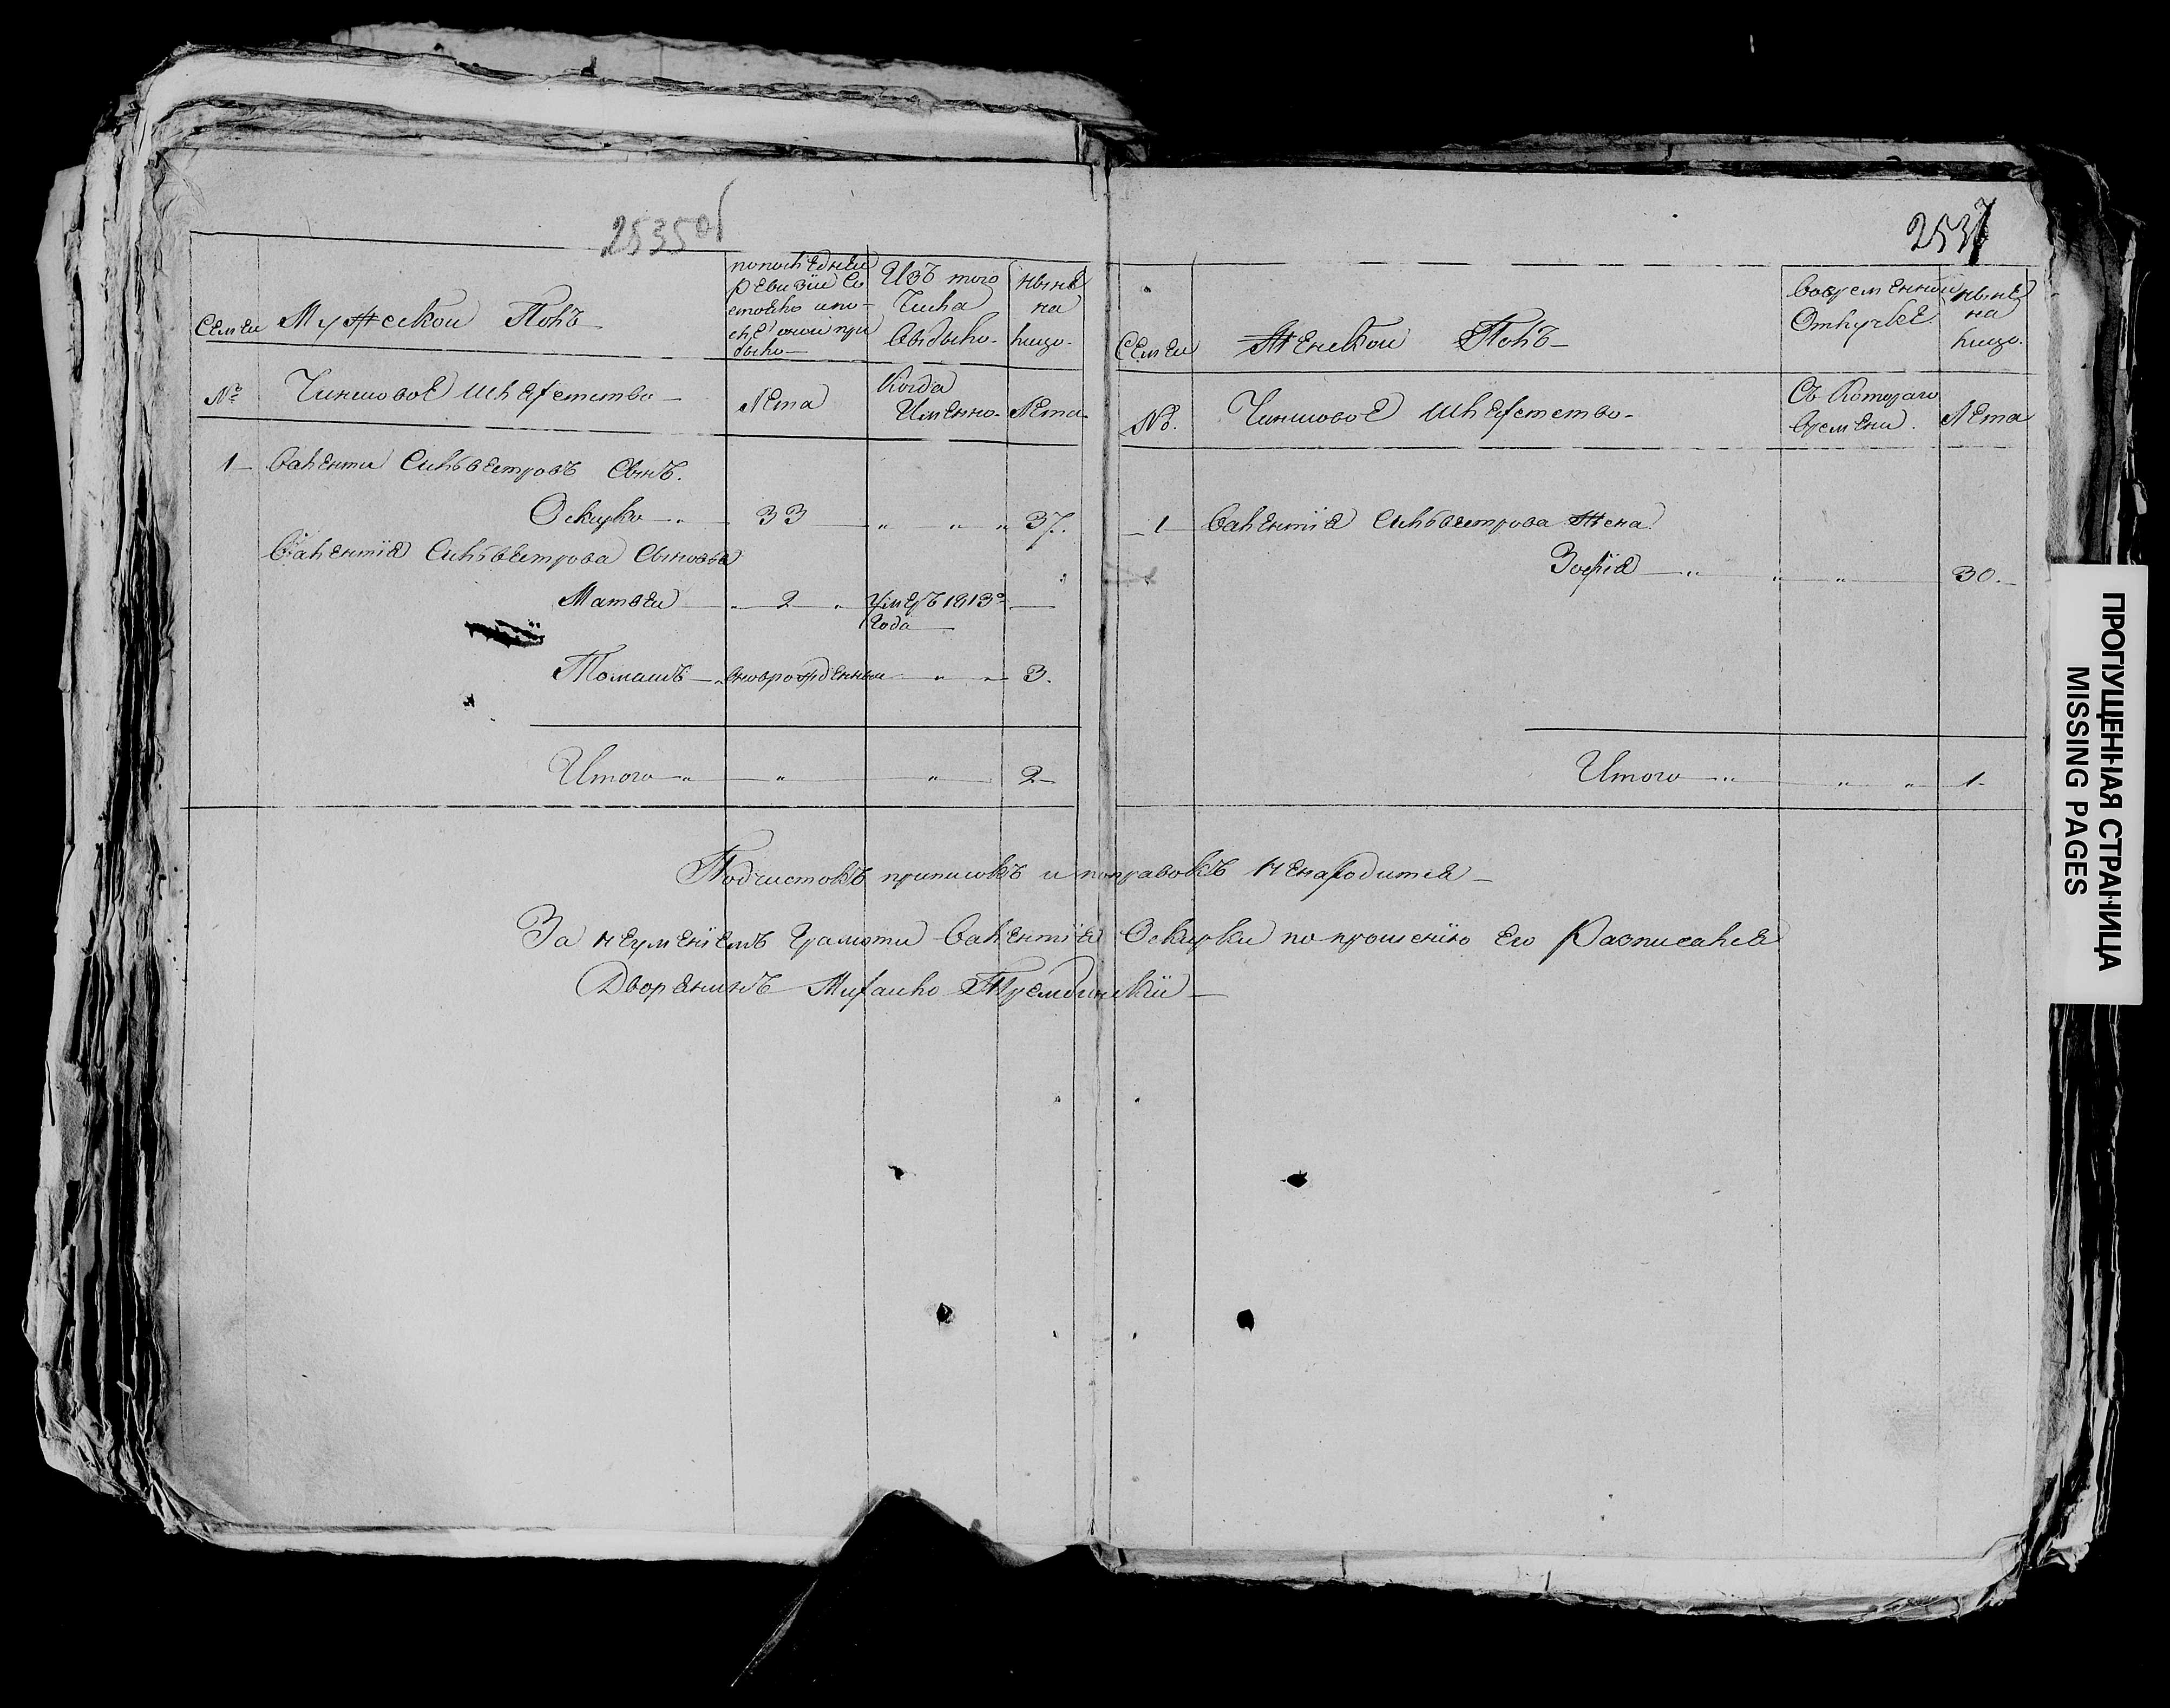 2535об
Семьи Мужескои Полъ
попоследнеи ревизии со стояло и по слѣ оной при было
Изъ того Числа выбыло
нынѣ на лицо.
№ Чиншовоѣ шляхетство
Лета
Когда Именно
Лета
1 Валенти Сильвестровъ Сынъ.
Оскирко 33 37.
Валентія Сильвестрова Сыновья
Матвеи 2 Умеръ 1813го
Года
Томашъ вноврожденныи 3.
Итого 2
2537
Семьи Женскои Полъ
Вовременнои Отлучкѣ.
нынѣ на лицо.
№. Чиншовоѣ шляхетство
Съ Котораго времени.
Лета
1 Валентія Сильвестрова Жена
Зофія 30.
Итого 1
Подчистокъ приписокъ и поправокъ ненаходится
За неуменіемъ грамоти Валентія Оскирки по прошенію Его Расписался
Дворянинъ Михаило Трембицкій
ПРОПУЩЕННАЯ СТРАНИЦА
MISSING PAGES